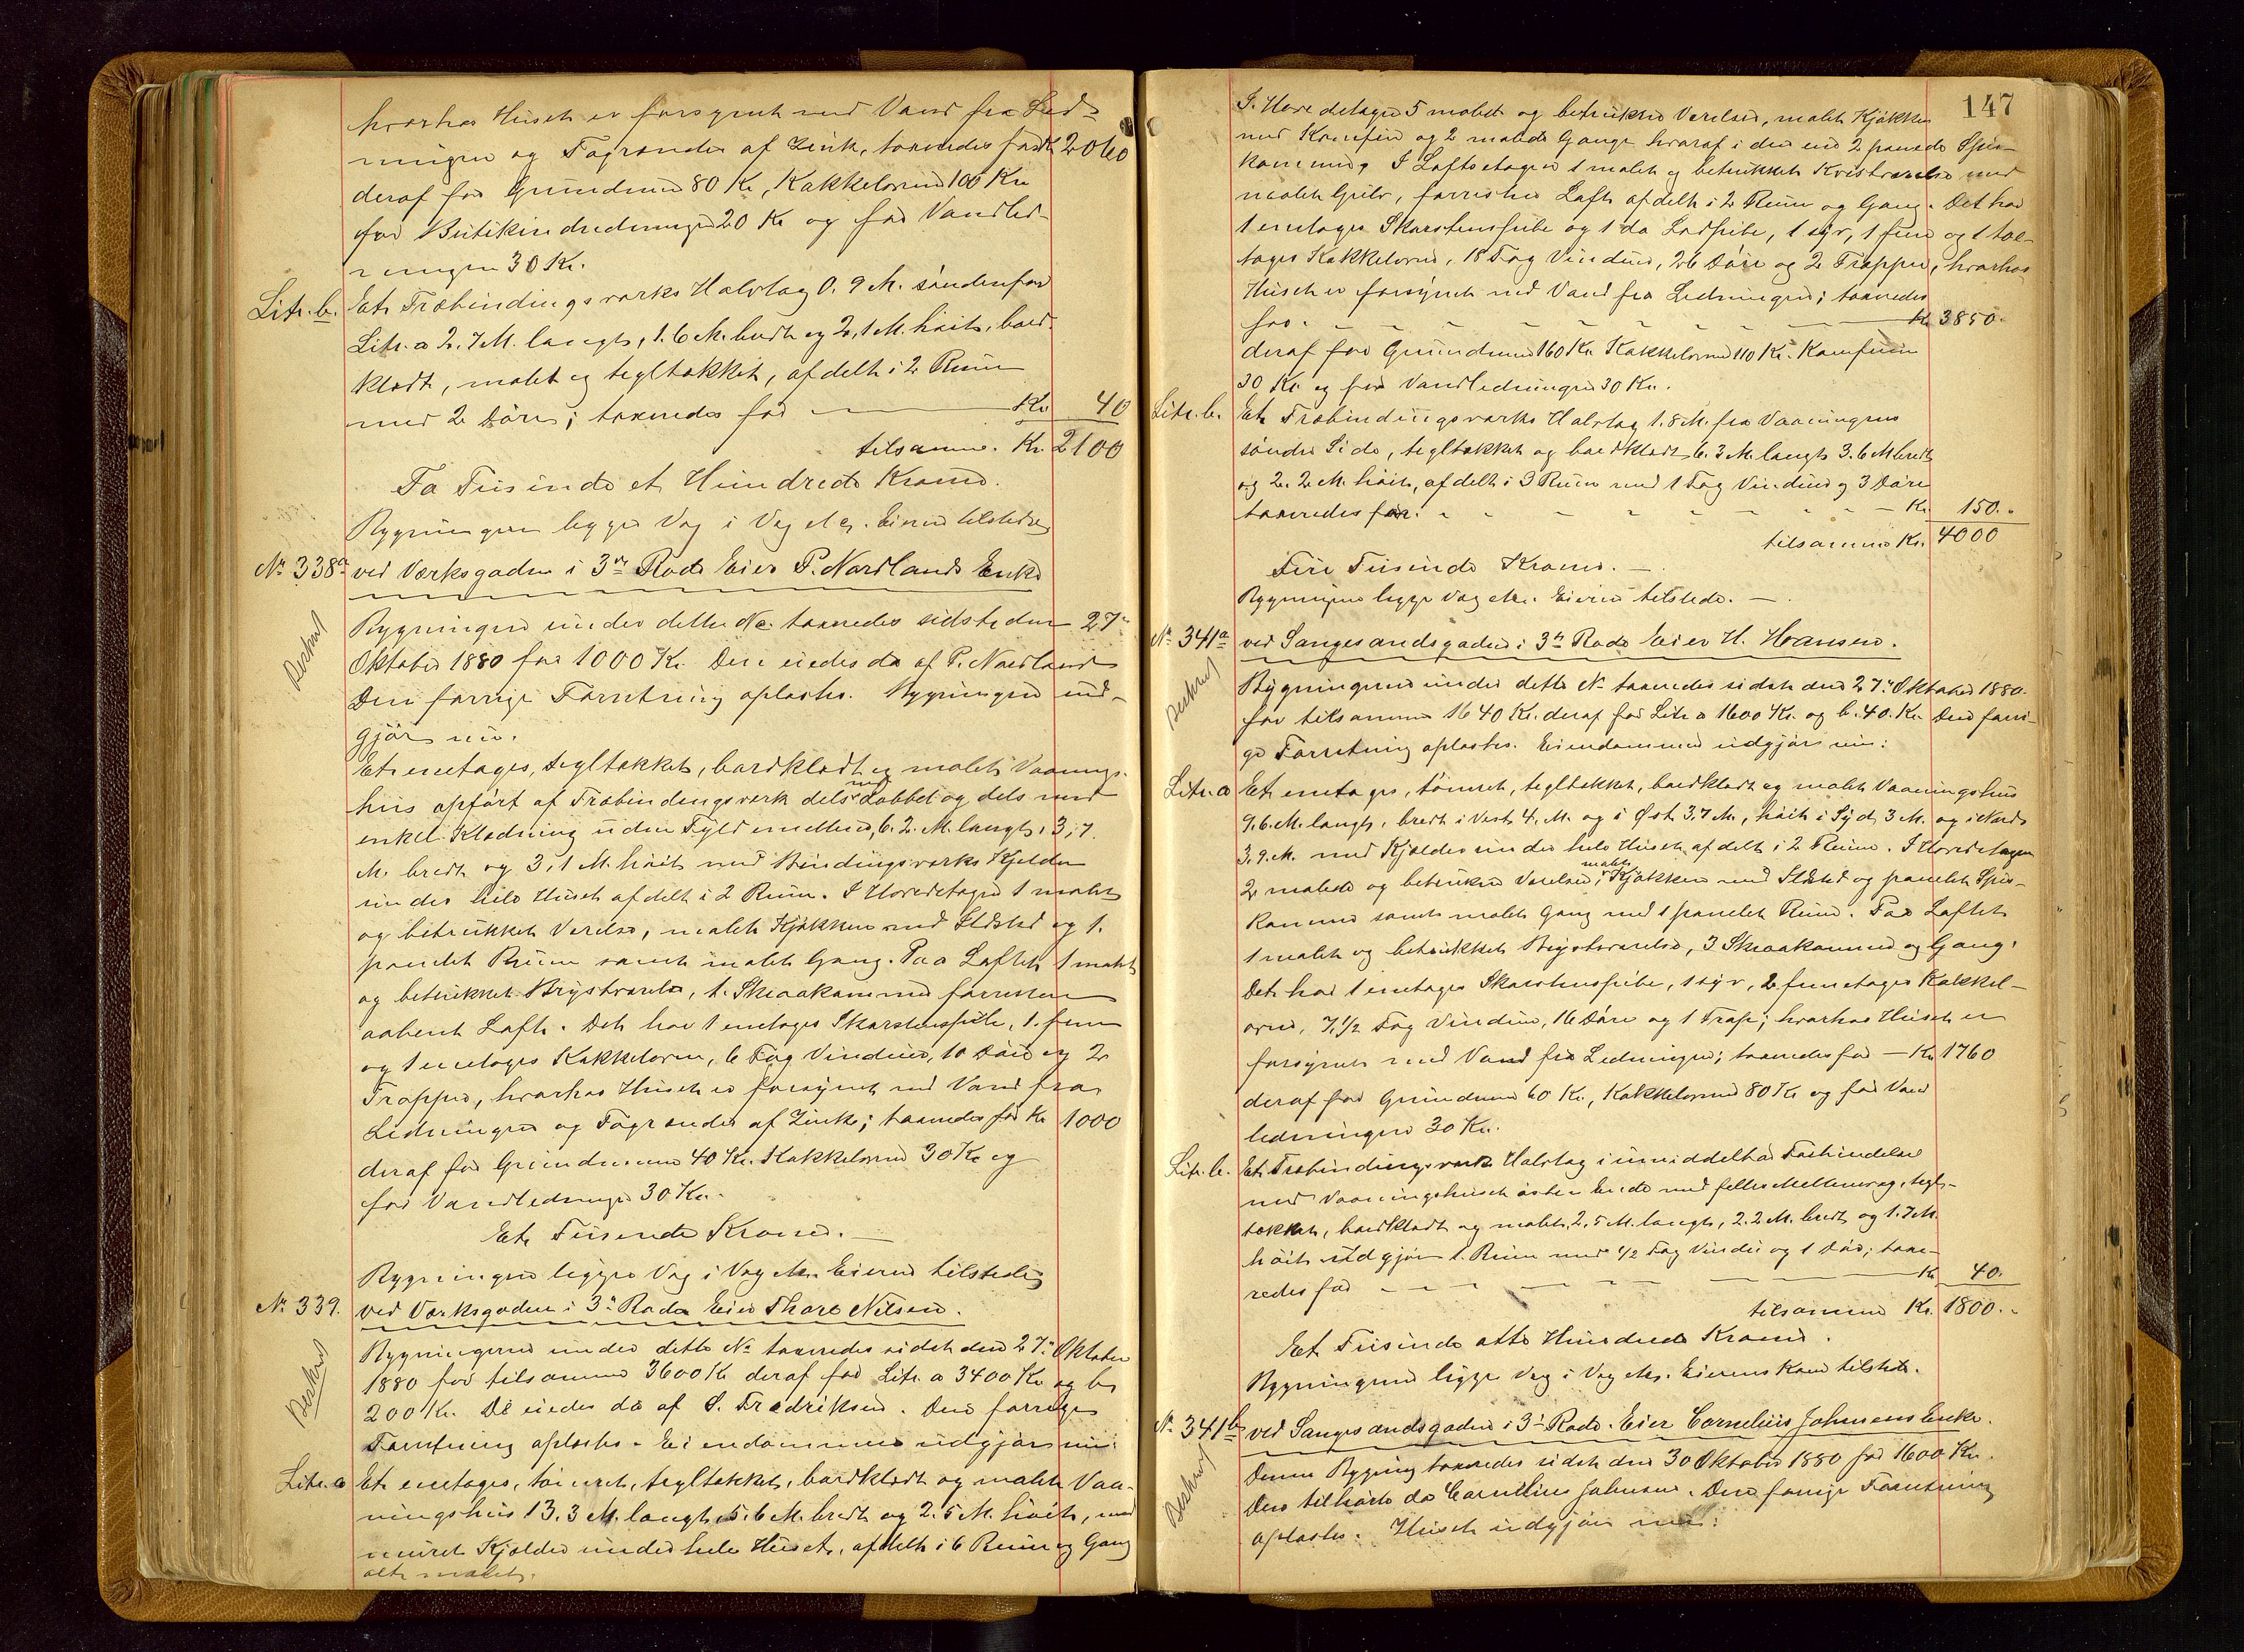 hvorhos Huset er forsynet med Vand fra Led-
ningen og Tagrender af Zink, taxeredes for Kr 2060
deraf for Grundmur 80 Kr, Kakkelovne 100 Kr
for Butikindredningen 20 Kr og for Vandled-
ningen 30 Kr.
Litr. b. Et Træbindingsværks Halvtag 0.9 M. søndenfor
Litr. a 2.7 M. langt, 1.6 M. bredt og 2,1 M. høit, bord-
klædt, malet og tegltækket, afdelt i 2 Rum
med 2 Døre; taxeredes for Kr 40
tilsamm. Kr. 2100
To Tusinde et Hundrede Kroner.
Bygningen ligger Væg i Væg etc. Eieren tilstede
No 338a ved Værksgaden i 3die Rode Eier P. Nordlands Enke
Beskrevet
Bygningen under dette No. taxeredes sidst den 27"
Oktober 1880 for 1000 Kr. Den eiedes da af P. Nordland
Den forrige Forretning oplæstes. Bygningen ud-
gjør nu.
Et enetages, tegltækket, bordklædt og malet Vaanings-
hus opført af Træbindingsverk dels med dobbel og dels med
enkel Klædning uden Fyld imellem, 6.2. M. langt, 3,7.
M. bredt og 3,1 M. høit med Bindingsværks Kjelder
under hele Huset afdelt i 2 Rum. I Hovedetagen 1 malet
og betrukket Værelse, malet Kjøkken med Ildsted og 1.
panelet Rum samt malet Gang. Paa Loftet 1 malet
og betrukket Brystværelse, 1. Skraakammer forresten
aabent Loft. Det har 1 enetages Skorstenspibe, 1. fem
og 1 enetages Kakkelovn, 6 Fag Vinduer, 10 Døre og 2
Trapper, hvorhos Huset er forsynet med Vand fra
Ledningen og Tagrender af Zink; taxeredes for Kr 1000
deraf for Grundmuren 40 Kr. Kakkelovne 30 Kr og
for Vandledningen 30 Kr.
Et Tusende Kroner.
Bygningen ligger Væg i Væg etc. Eieren tilstede
No 339. ved Værksgaden i 3" Rode Eier Thore Nilsen.
Beskrevet
Bygningerne under dette No taxeredes sidst den 27" Oktober
1880 for tilsammen 3600 Kr deraf for Litr. a 3400 Kr og b
200 Kr. De eiedes da af S. Fredriksen. Den forrige
Forretning oplæstes. Eiendommen udgjør nu:
Litr. a Et enetages, tømret, tegltækket, bordklædt og malet Vaa-
ningshus 13.3 M. langt, 5.6 M. bredt og 2.5 M. høit, med
muret Kjælder under hele Huset, afdelt i 6 Rum og Gang
alt malet.
147
I. Hovedetagen 5 malede og betrukne Værelser, malet Kjøkken
med Komfur og 2 malede Gange hvoraf i den ene 2 panede Spis-
kammere. I Loftsetagen 1 malet og betrukket Kvistværelse med
malet Gulv, forresten Loft afdelt i 2 Rum og Gang. Det har
1 enetages Skorstenspibe og 1 do Lodpibe, 1 syv, 1 fem og 1 toe-
tages Kakkelovne, 18 Fag Vinduer, 26 Døre og 2 Trapper, hvorhos
Huset er forsynet med Vand fra Ledningen; taxeredes
for. Kr 3850.
deraf for Grundmur 160 Kr Kakkelovne 110 Kr. Komfuren
30 Kr og for Vandledningen 30 Kr.
Litr. b. Et Træbindingsværks Halvtag 1.8 M. fra Vaaningens
søndre Side, tegltækket og bordklædt 6.3 M. langt 3.6 M bredt
og 2.2 M. høit, afdelt i 3 Rum med 1 Fag Vinduer og 3 Døre
taxeredes for. Kr. 150.
tilsammen Kr. 4000
Fire Tusinde Kroner.
Bygningerne ligge Væg etc. Eieren tilstede.
No 341a ved Sangesandsgaden i 3" Rode Eier H. Hansen.
Beskrevet
Bygningerne under dette No taxeredes sidst den 27" Oktober 1880.
for tilsammen 1640 Kr. deraf for Litr a 1600 Kr. og b. 40. Kr. Den forri-
ge Forretning oplæstes. Eiendommen udgjør nu:
Litr. a Et enetages, tømret, tegltækket, bordklædt og malet Vaaningshus
9.6. M. langt, bredt i Vest 4. M. og i Øst 3.7 M., høit i Syd 3 M. og i Nord
3.9. M. med Kjælder under hele Huset afdelt i 2 Rum. I Hovedetagen
2 malede og betrukne Værelser, malet Kjøkken med Ildsted og panelet Spis-
kammer samt malet Gang med 1 panelet Rum. Paa Loftet
1 malet og betrukket Brystværelse, 3 Skraakammere og Gang.
Det har 1 enetages Skorstenspibe, 1 syv, 2 femetages Kakkel-
ovne, 7½ Fag Vinduer, 16 Døre og 1 Trap; hvorhos Huset er
forsynet med Vand fra Ledningen; taxeredes for — Kr 1760
deraf for Grundmur 60 Kr., Kakkelovne 80 Kr og for Vand
ledningen 30 Kr.
Litr. b. Et Træbindingsværks Halvtag i umiddelbar Forbindelse
med Vaaningshusets østre Ende med fælles Mellemvæg, tegl-
tækket, bordklædt og malet, 2.5 M. langt, 2.2 M. bredt og 1.7 M.
høit udgjør 1. Rum med 1/2 Fag Vindu og 1 Dør; taxe-
redes for Kr 40.
tilsammen Kr. 1800.
Et Tusinde otte Hundrede Kroner.
Bygningerne ligge Væg i Væg etc. Eierens Kone tilstede.
No 341b ved Sangesandsgaden i 3" Rode. Eier Cornelius Johnsens Enke.
Beskrevet
Denne Bygning taxeredes sidst den 30 Oktober 1880 for 1600 Kr.
Den tilhørte da Cornelius Johnsen. Den forrige Forretning
oplæstes. Huset udgjør nu: